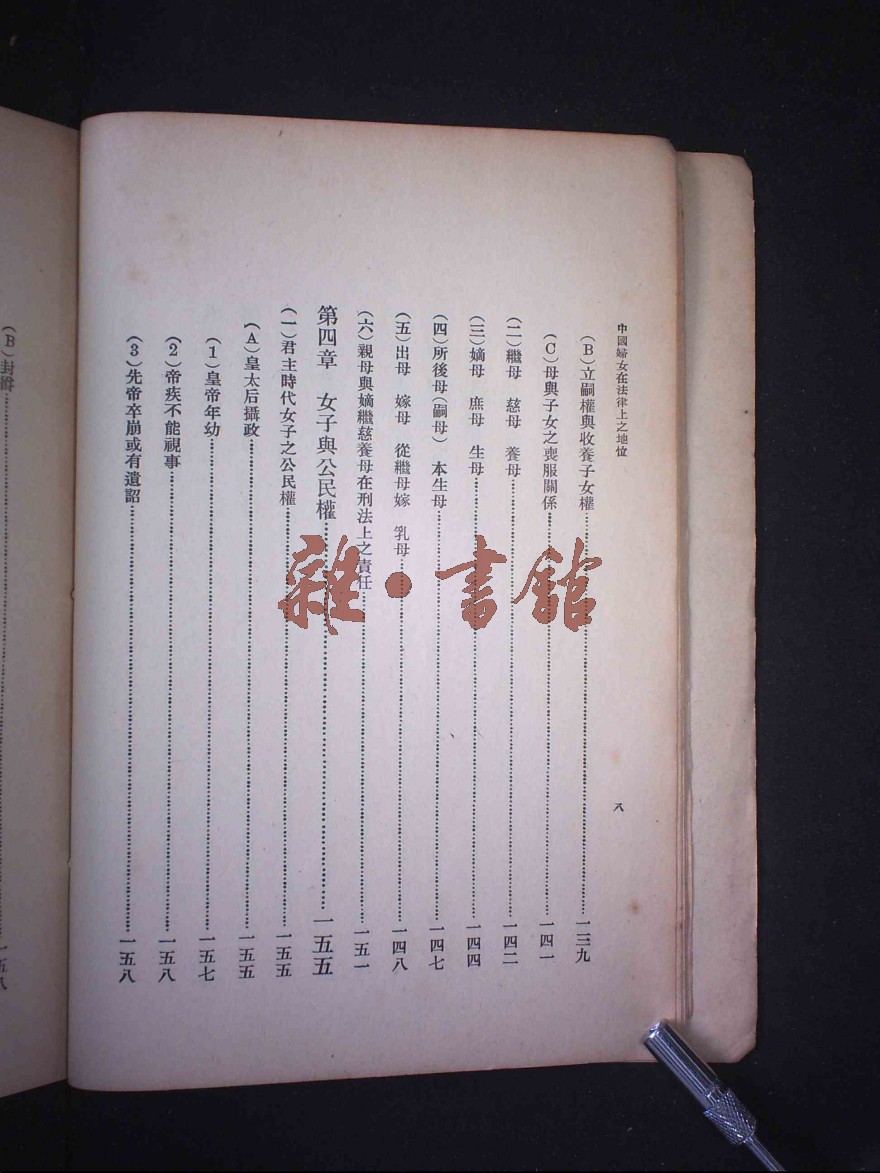 中國婦女在法律上之地位
八
（B）立嗣權與收養子女權……一三九
（C）母與子女之喪服關係……一四一
（二）繼母　慈母　養母……一四二
（三）嫡母　庶母　生母……一四四
（四）所後母（嗣母）　本生母……一四七
（五）出母　嫁母　從繼母嫁　乳母……一四八
（六）親母與嫡繼慈養母在刑法上之責任……一五一
第四章　女子與公民權……一五五
（一）君主時代女子之公民權……一五五
（A）皇太后攝政……一五五
（1）皇帝年幼……一五七
（2）帝疾不能視事……一五八
（3）先帝卒崩或有遺詔……一五八
（B）封爵……一五八
雜·書館